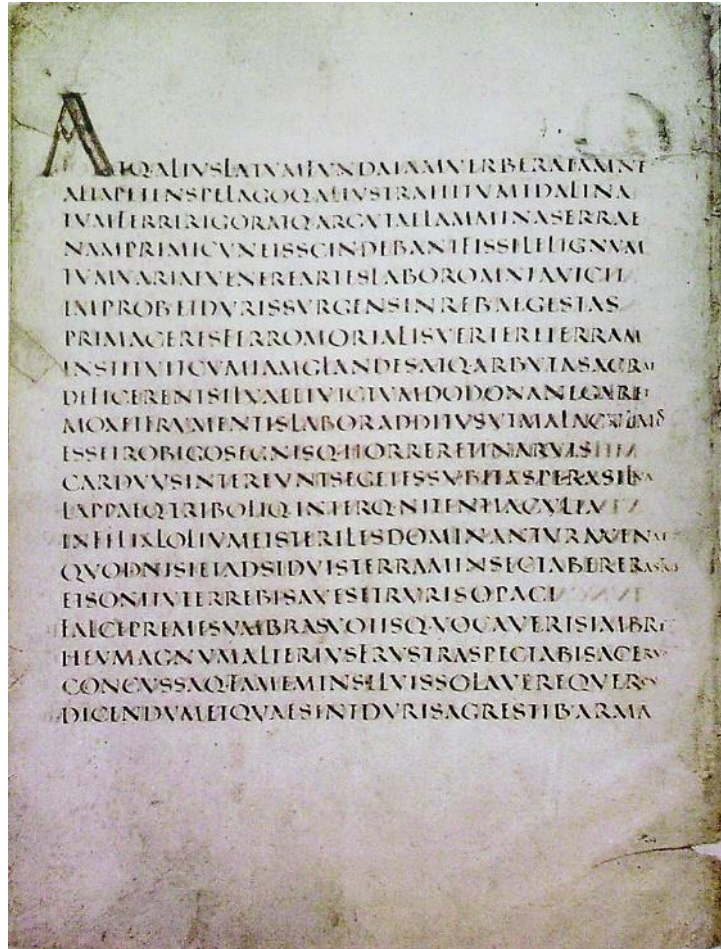 ATQ·ALIVSLATVMFVNDAIAMVERBERATAMNE
ALTAPETENSPELAGOQ·ALIVSTRAHITVMIDALINA
TVMFERRIRIGORATQ·ARGVTAELAMMINASERRAE
NAMPRIMICVNEISSCINDEBANTFISSILELIGNVM
TVMVARIAEVENEREARTESLABOROMNIAVICIT
IMPROB·ETDVRISSVRGENSINREB·AEGESTAS
PRIMACERESFERROMORTALISVERTERETERRAM
INSTITVITCVMIAMGLANDESATQ·ARBVTASACRAE
DEFICERENTSILVAEETVICTVMDODONANEGARET
MOXETFRVMENTISLABORADDITVSVTMALACVLMOS
ESSETROBIGOSEGNISQ·HORRERETINARVIS
CARDVVSINTEREVNTSEGETESSVBITASPERASILVA
LAPPAEQ·TRIBOLIQ·INTERQ·NITENTIACVLTA
INFELIXLOLIVMETSTERILESDOMINANTVRAVENAE
QVODNISIETADSIDVISTERRAMINSECTABERERASTRIS
ETSONITVTERREBISAVESETRVRISOPACI
FALCEPREMESVMBRASVOTISQ·VOCAVERISIMBRE
HEVMAGNVMALTERIVSFRVSTRASPECTABISACERVOM
CONCVSSAQ·FAMEMINSILVISSOLAVEREQVERCV
DICENDVMETQVAESINTDVRISAGRESTIB·ARMA